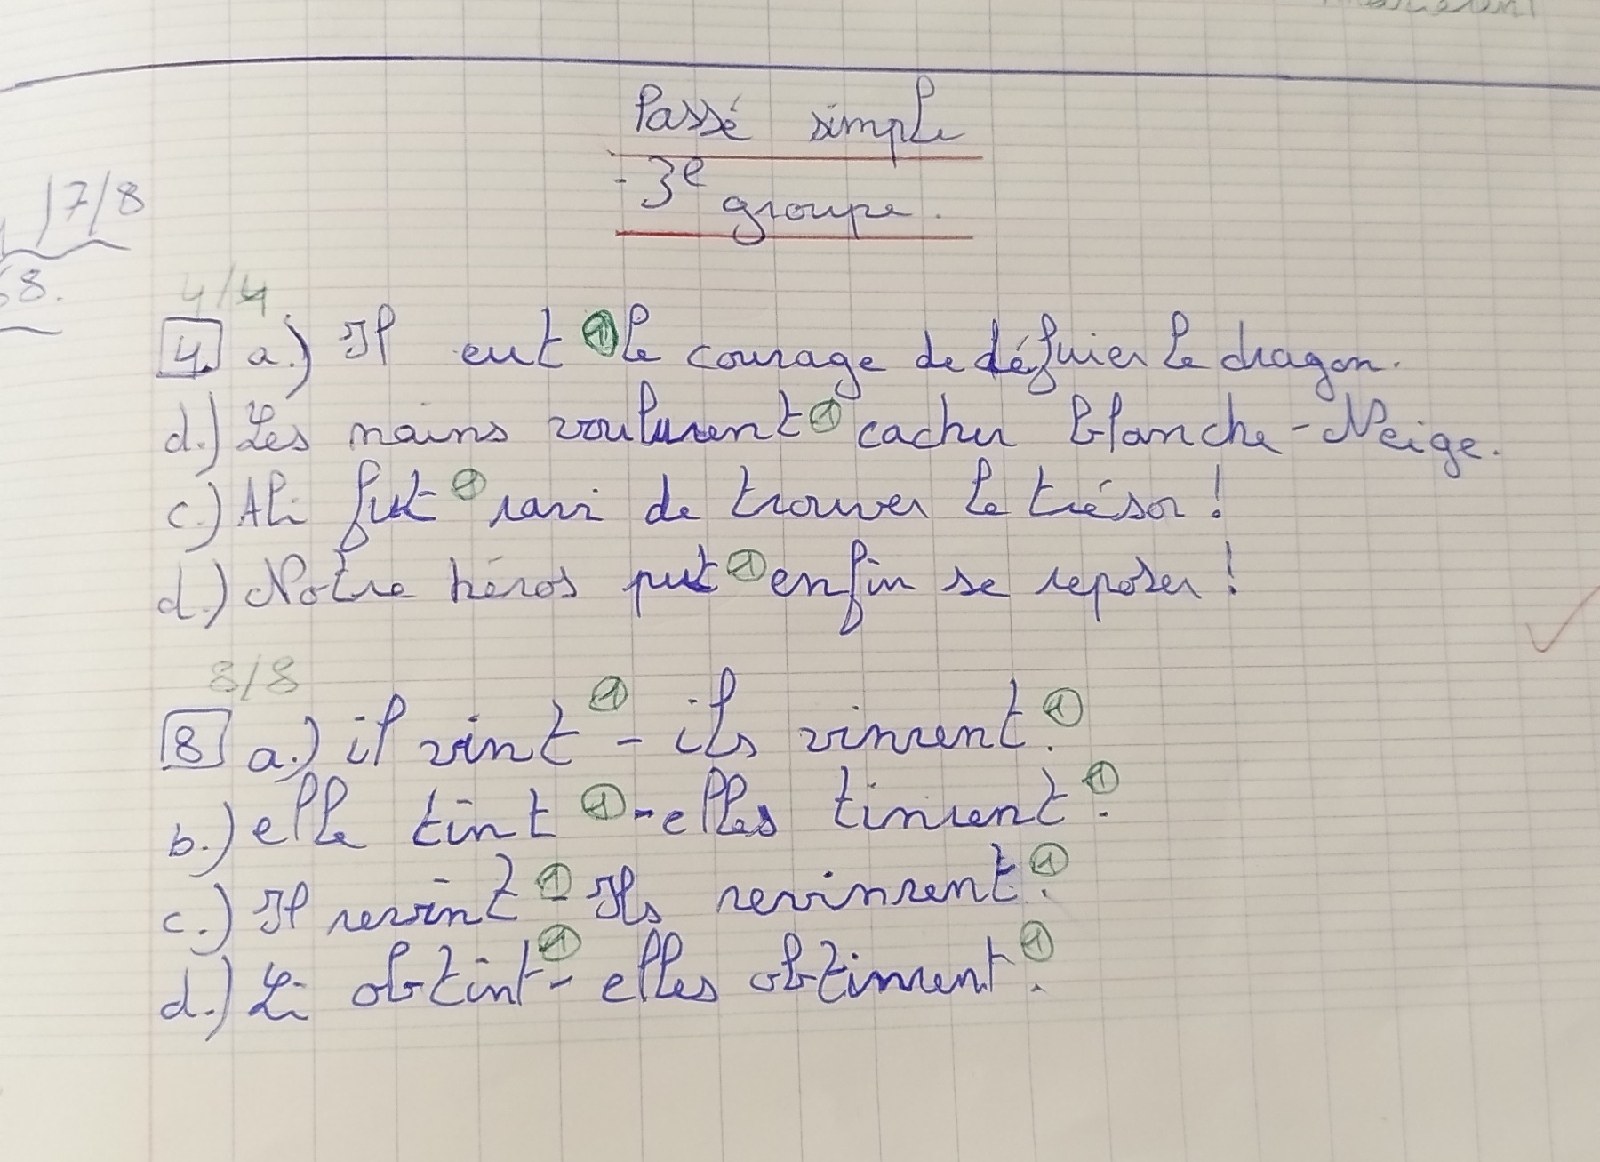 Passé simple
-3e groupe.
17/8
68.
4/4
4. a.) Il eut ① le courage de défuier le dragon.
d.) Les nains voulurent ① cacher Blanche-Neige.
c.) Ali fut ① ravi de trouver le trésor !
d.) Notre héros put ① enfin se reposer !
8/8
8 a.) il vint ① - ils vinrent ①.
b.) elle tint ① - elles tinrent ①.
c.) Il revint ① - Ils revinrent ①.
d.) Li obtint ① - elles obtinrent ①.